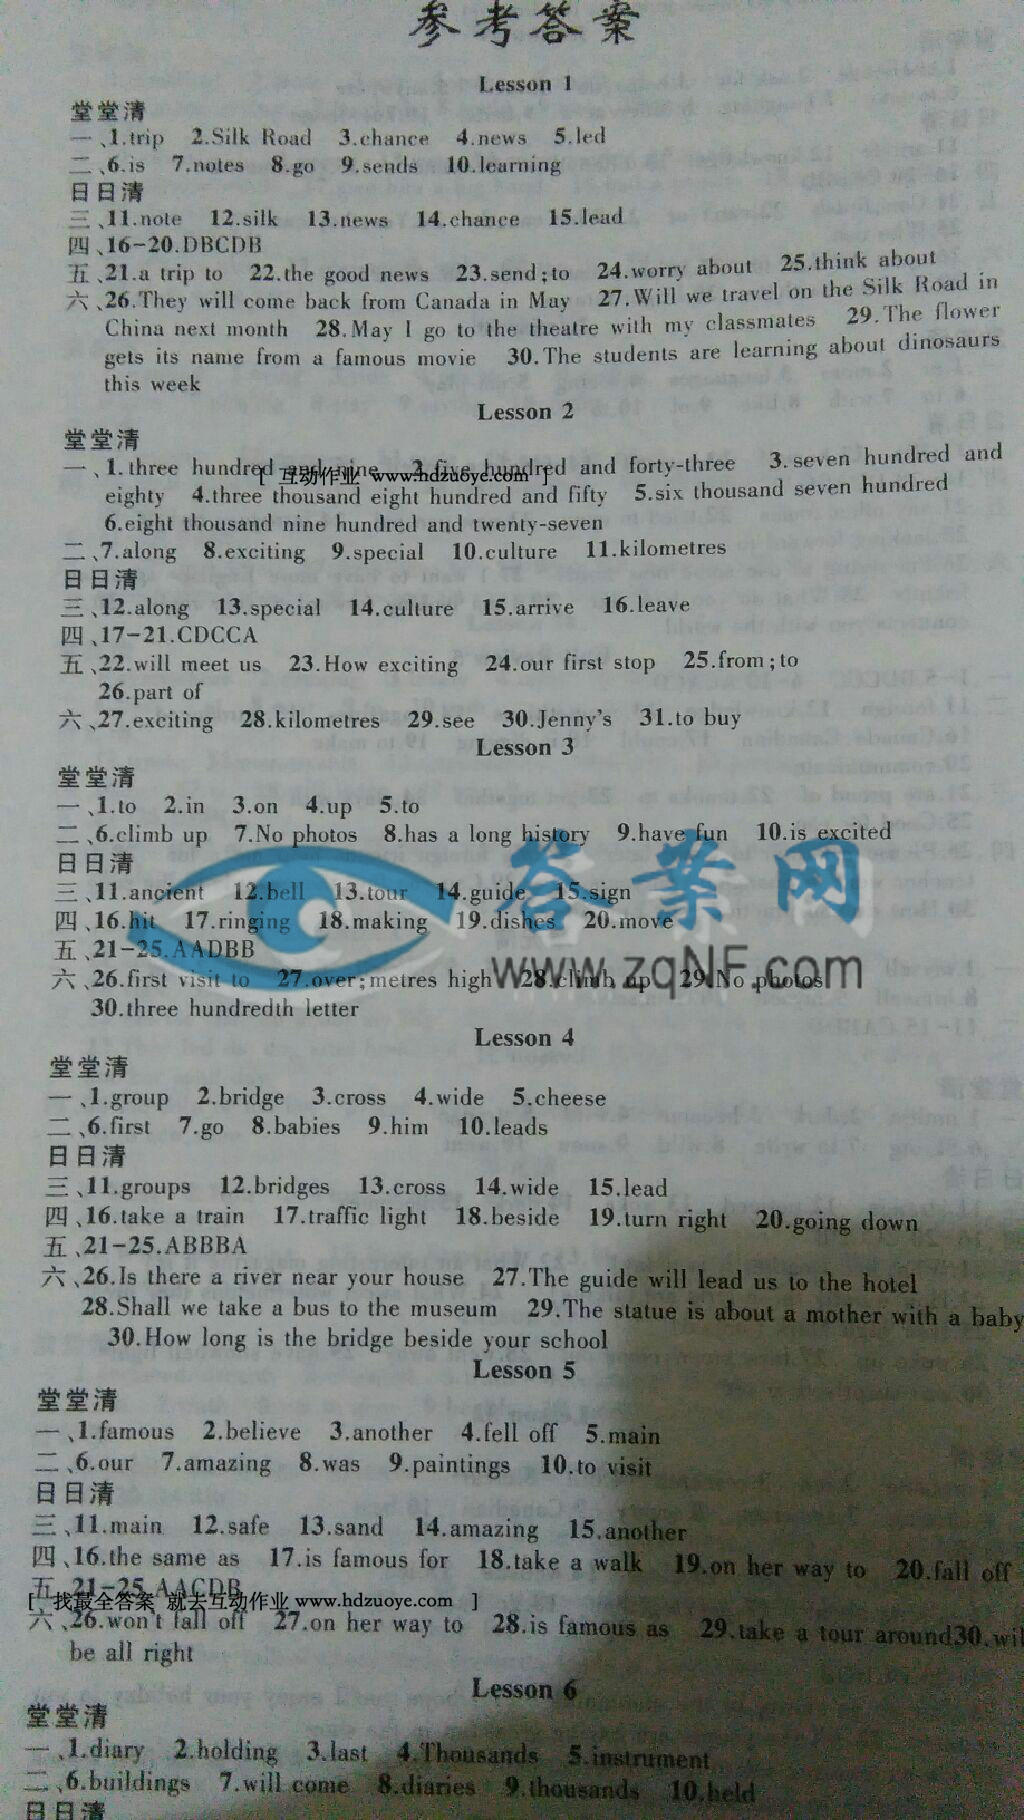 参考答案
Lesson 1
堂堂清
一、1.trip 2.Silk Road 3.chance 4.news 5.led
二、6.is 7.notes 8.go 9.sends 10.learning
日日清
三、11.note 12.silk 13.news 14.chance 15.lead
四、16-20.DBCDB
五、21.a trip to 22.the good news 23.send;to 24.worry about 25.think about
六、26.They will come back from Canada in May 27.Will we travel on the Silk Road in
China next month 28.May I go to the theatre with my classmates 29.The flower
gets its name from a famous movie 30.The students are learning about dinosaurs
this week
Lesson 2
堂堂清
一、1.three hundred and nine 2.five hundred and forty-three 3.seven hundred and
[ 互动作业 www.hdzuoye.com ]
eighty 4.three thousand eight hundred and fifty 5.six thousand seven hundred
6.eight thousand nine hundred and twenty-seven
二、7.along 8.exciting 9.special 10.culture 11.kilometres
日日清
三、12.along 13.special 14.culture 15.arrive 16.leave
四、17-21.CDCCA
五、22.will meet us 23.How exciting 24.our first stop 25.from;to
26.part of
六、27.exciting 28.kilometres 29.see 30.Jenny's 31.to buy
Lesson 3
堂堂清
一、1.to 2.in 3.on 4.up 5.to
二、6.climb up 7.No photos 8.has a long history 9.have fun 10.is excited
日日清
三、11.ancient 12.bell 13.tour 14.guide 15.sign
答案网
四、16.hit 17.ringing 18.making 19.dishes 20.move
五、21-25.AADBB
www.zqNF.com
六、26.first visit to 27.over;metres high 28.climb up 29.No photos
30.three hundredth letter
Lesson 4
堂堂清
一、1.group 2.bridge 3.cross 4.wide 5.cheese
二、6.first 7.go 8.babies 9.him 10.leads
日日清
三、11.groups 12.bridges 13.cross 14.wide 15.lead
四、16.take a train 17.traffic light 18.beside 19.turn right 20.going down
五、21-25.ABBBA
六、26.Is there a river near your house 27.The guide will lead us to the hotel
28.Shall we take a bus to the museum 29.The statue is about a mother with a baby
30.How long is the bridge beside your school
Lesson 5
堂堂清
一、1.famous 2.believe 3.another 4.fell off 5.main
二、6.our 7.amazing 8.was 9.paintings 10.to visit
日日清
三、11.main 12.safe 13.sand 14.amazing 15.another
四、16.the same as 17.is famous for 18.take a walk 19.on her way to 20.fall off
五、21-25.AACDB
[ 找最全答案 就去互动作业 www.hdzuoye.com ]
六、26.won't fall off 27.on her way to 28.is famous as 29.take a tour around30.wil
be all right
Lesson 6
堂堂清
一、1.diary 2.holding 3.last 4.Thousands 5.instrument
二、6.buildings 7.will come 8.diaries 9.thousands 10.held
日日清